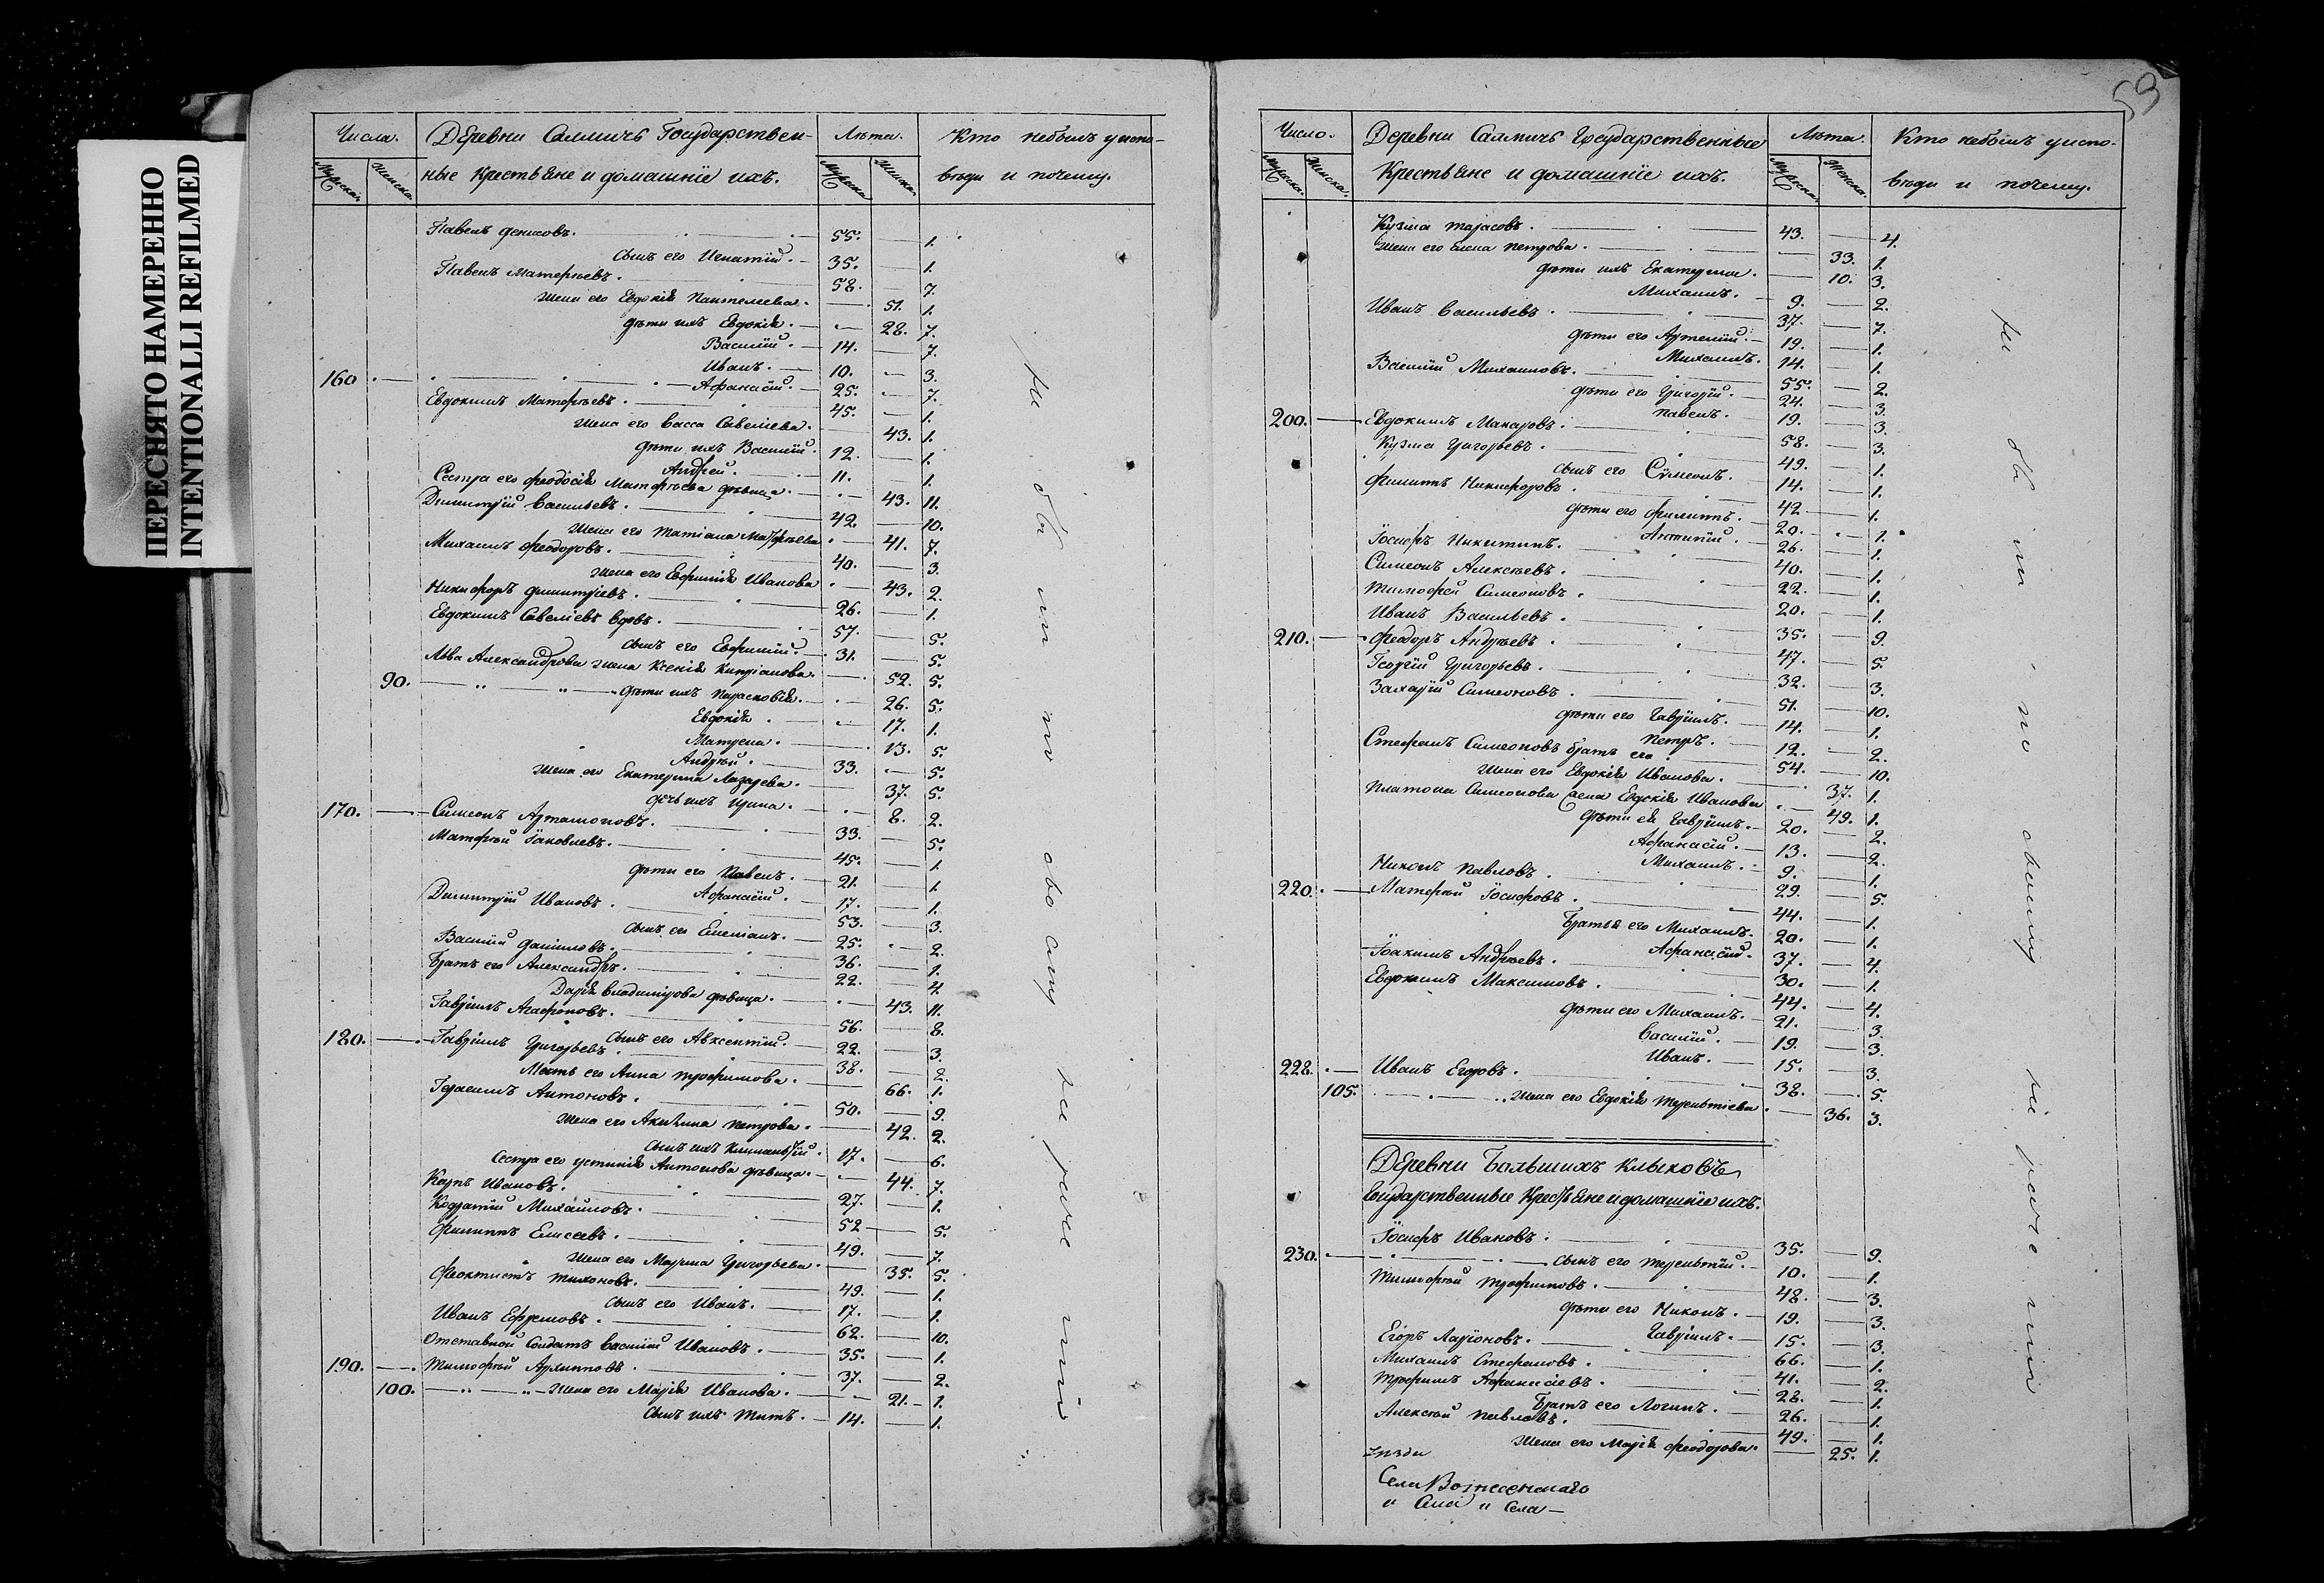 ПЕРЕСНЯТО НАМЕРЕННО
INTENTIONALLI REFILMED
Числа. Деревни Салмичъ Государствен- Лѣта. Кто небылъ у испо-
Мужска. Женска. ные Крестьяне и домашнїе ихъ. Мужска. Женска. вѣди и почему.
Павелъ Денисовъ. 55. 1.
Сынъ его Игнатїй. 35. 1.
Павелъ Матѳеевъ. 58. 7.
Жена его Евдокїя Пантелеева. 51. 1.
Дѣти ихъ Евдокїя. 28. 7.
Василїй. 14. 7.
Иванъ. 10. 3.
160 Афанасїй. 25. 7.
Евдокимъ Матфѣевъ. 45. 1.
Жена его Васса Савелїева. 43. 1.
Дѣти ихъ Василїй. 12. 1.
Андрей. 11. 1.
Сестра его Феодосїя Матфѣева дѣвица. 43. 11.
Димитрїй Васильевъ. 42. 10.
Жена его Татїана Матфѣева. 41. 7.
Михаилъ Феодоровъ. 40. 3.
Жена его Евфимїя Иванова 43. 2.
Никифоръ Димитрїевъ. 26. 1.
Евдокимъ Савелїевъ вдовъ. 57. 5.
Сынъ его Ефимїй. 31. 5.
Льва Александрова жена Ксенїя Кипрїанова. 52. 5.
90. Дѣти ихъ Парасковїя. 26. 5.
Евдокїя. 17. 1.
Матрена. 13. 5.
Андрѣй. 33. 5.
Жена его Екатерина Лазарева. 37. 5.
Дочь ихъ Ирина. 8. 2.
170. Симеонъ Артамоновъ. 33. 5.
Матфѣй Їаковлевъ. 45. 1.
Дѣти его Павелъ. 21. 1.
Афанасїй. 17. 1.
Димитрїй Ивановъ. 53. 3.
Сынъ его Емелїанъ. 25. 2.
Василїй Данииловъ. 36. 1.
Братъ его Александръ. 22. 4.
Дарїя Владимїрова дѣвица. 43. 11.
Гаврїилъ Агафоновъ. 56. 8.
Сынъ его Авксентїй. 22. 3.
180. Гаврїилъ Григорьевъ. 38. 2.
Мать его Анна Трофимова. 66. 1.
Герасимъ Антоновъ. 50. 9.
Жена его Акилина Петрова. 42. 2.
Сынъ ихъ 17. 6.
Сестра его Устинїя Антонова дѣвица. 44. 7.
Карпъ Ивановъ. 27. 1.
Кодратїй Михайловъ. 52 5.
Филиппъ Елисеевъ. 49. 7.
Жена его Марина Григорьева. 35. 5.
Феоктистъ Тихоновъ. 49. 1.
Сынъ его Иванъ. 17. 1.
Иванъ Ефремовъ. 62. 10.
Отставной Солдатъ Василїй Ивановъ. 35. 1.
190. Тимофѣй Архиповъ. 37. 2.
100. Жена его Марїя Иванова. 21. 1.
Сынъ ихъ Титъ. 14. 1.
59
Число. Деревни Салмичъ Государственные Лѣта. Кто небылъ у испо-
Мужска. Женска. Крестьяне и домашнїе ихъ. Мужска. Женска. вѣди и почему.
Кузма Тарасовъ. 43. 4.
Жена его Елена Петрова. 33. 1.
Дѣти ихъ Екатерина. 10. 3.
Михаилъ. 9. 2.
Иванъ Васильевъ. 37. 7.
Дѣти его Артемїй. 19. 1.
Михаилъ. 14. 1.
Василїй Михаиловъ. 55. 2.
Дѣти его Григорїй. 24. 3.
Павелъ. 19. 3.
200. Евдокимъ Макаровъ. 58. 3.
Кузма Григорьевъ. 49. 1.
Сынъ его Сѵмеонъ. 14. 1.
Филиппъ Никифоровъ. 42 1.
Дѣти его Филиппъ. 20. 1.
Антипїй. 26. 1.
Їосифъ Никитинъ. 40. 1.
Симеонъ Алексѣевъ. 22. 1.
Тимофей Симеоновъ. 20. 1.
Иванъ Васильевъ. 35. 9.
210. Феодоръ Андрѣевъ. 47. 5.
Георгїй Григорьевъ. 32. 3.
Захарїй Симеоновъ. 51. 10.
Дѣти его Гаврїилъ. 14. 1.
Петръ. 12. 2.
Стефанъ Симеоновъ братъ его 54. 10.
Жена его Евдокїя Иванова. 37. 1.
Платона Симеонова жена Евдокїя Иванова 49. 1.
Дѣти ея Гаврїилъ. 20. 2.
Афанасїй. 13. 2.
Михаилъ. 9. 1.
Никонъ Павловъ. 29. 5.
220. Матфѣй Їосифовъ. 44. 1.
Братья его Михаилъ. 20. 1.
Афанасїй. 37. 4.
Їоакимъ Андрѣевъ. 30. 1.
Евдокимъ Максимовъ. 44. 4.
Дѣти его Михаилъ. 21. 3.
Василїй. 19. 3.
Иванъ. 15. 3.
228. Иванъ Егоровъ. 38. 5.
105. Жена его Евдокїя Терентїева 36. 3.
Деревни Большихъ Клыковъ
Государственные Крестьяне и домашнїе ихъ.
Їосифъ Ивановъ. 35. 9.
230. Сынъ его Терентїй. 10. 1.
Тимофѣй Трофимовъ. 48. 3.
Дѣти его Никонъ. 19. 3.
Гаврїилъ. 15. 3.
Егоръ Ларїоновъ. 66. 1.
Михаилъ Стефановъ. 41. 2.
Трофимъ Афанасїевъ. 28. 1.
Братъ его Логинъ. 26. 1.
Алексѣй Павловъ. 49. 1.
Жена его Марїя Феодорова. 25. 1.
Села Вознесенскаго